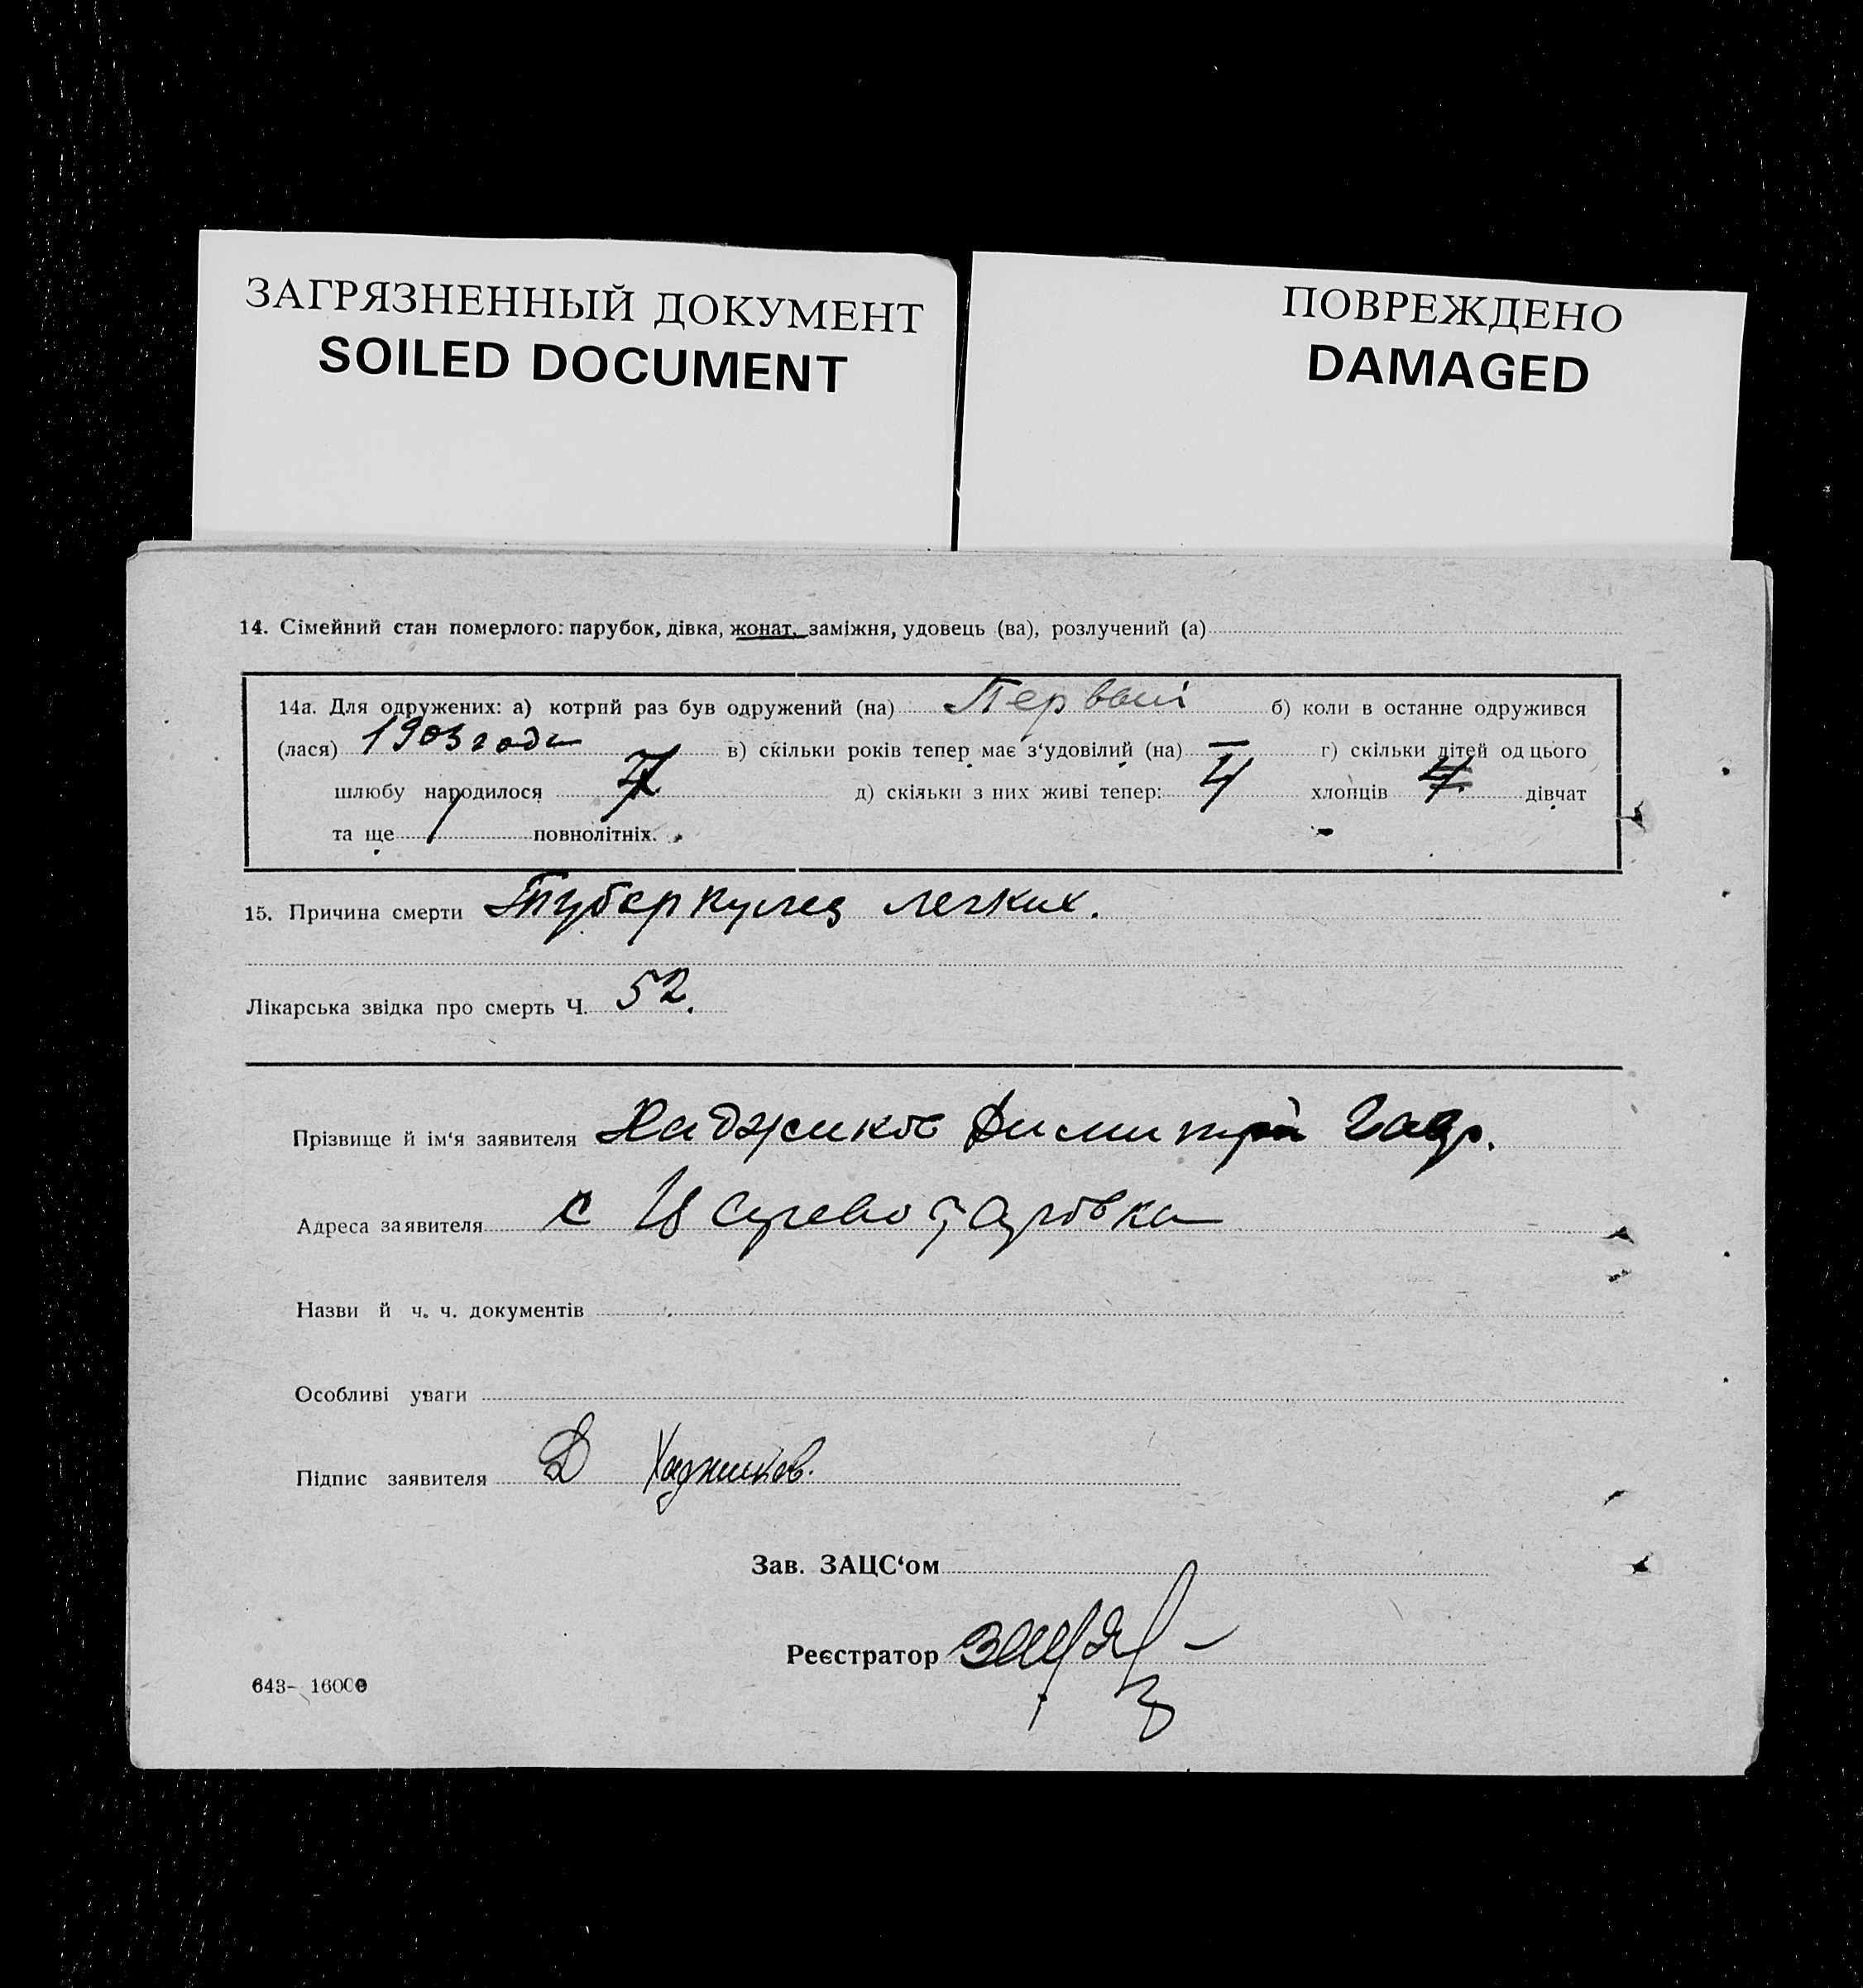 ЗАГРЯЗНЕННЫЙ ДОКУМЕНТ
SOILED DOCUMENT
ПОВРЕЖДЕНО
DAMAGED
14. Сімейний стан померлого: парубок, дівка, жонат, заміжня, удовець (ва), розлучений (а)
14а. Для одружених: а) котрий раз був одружений (на) Первый б) коли в останне одружився
(лася) 1903 года в) скільки років тепер має з‘удовілий (на) — г) скільки дітей од цього
шлюбу народилося 7 д) скільки з них живі тепер: 4 хлопців дівчат
та ще повнолітніх.
15. Причина смерти Туберкулез легких.
Лікарська звідка про смерть Ч. 52.
Прізвище й ім‘я заявителя Хаджиков Димитрий
Адреса заявителя с
Назви й ч. ч. документів
Особливі уваги
Підпис заявителя Д Хаджиков.
Зав. ЗАЦС‘ом
Реєстратор
643- 16000